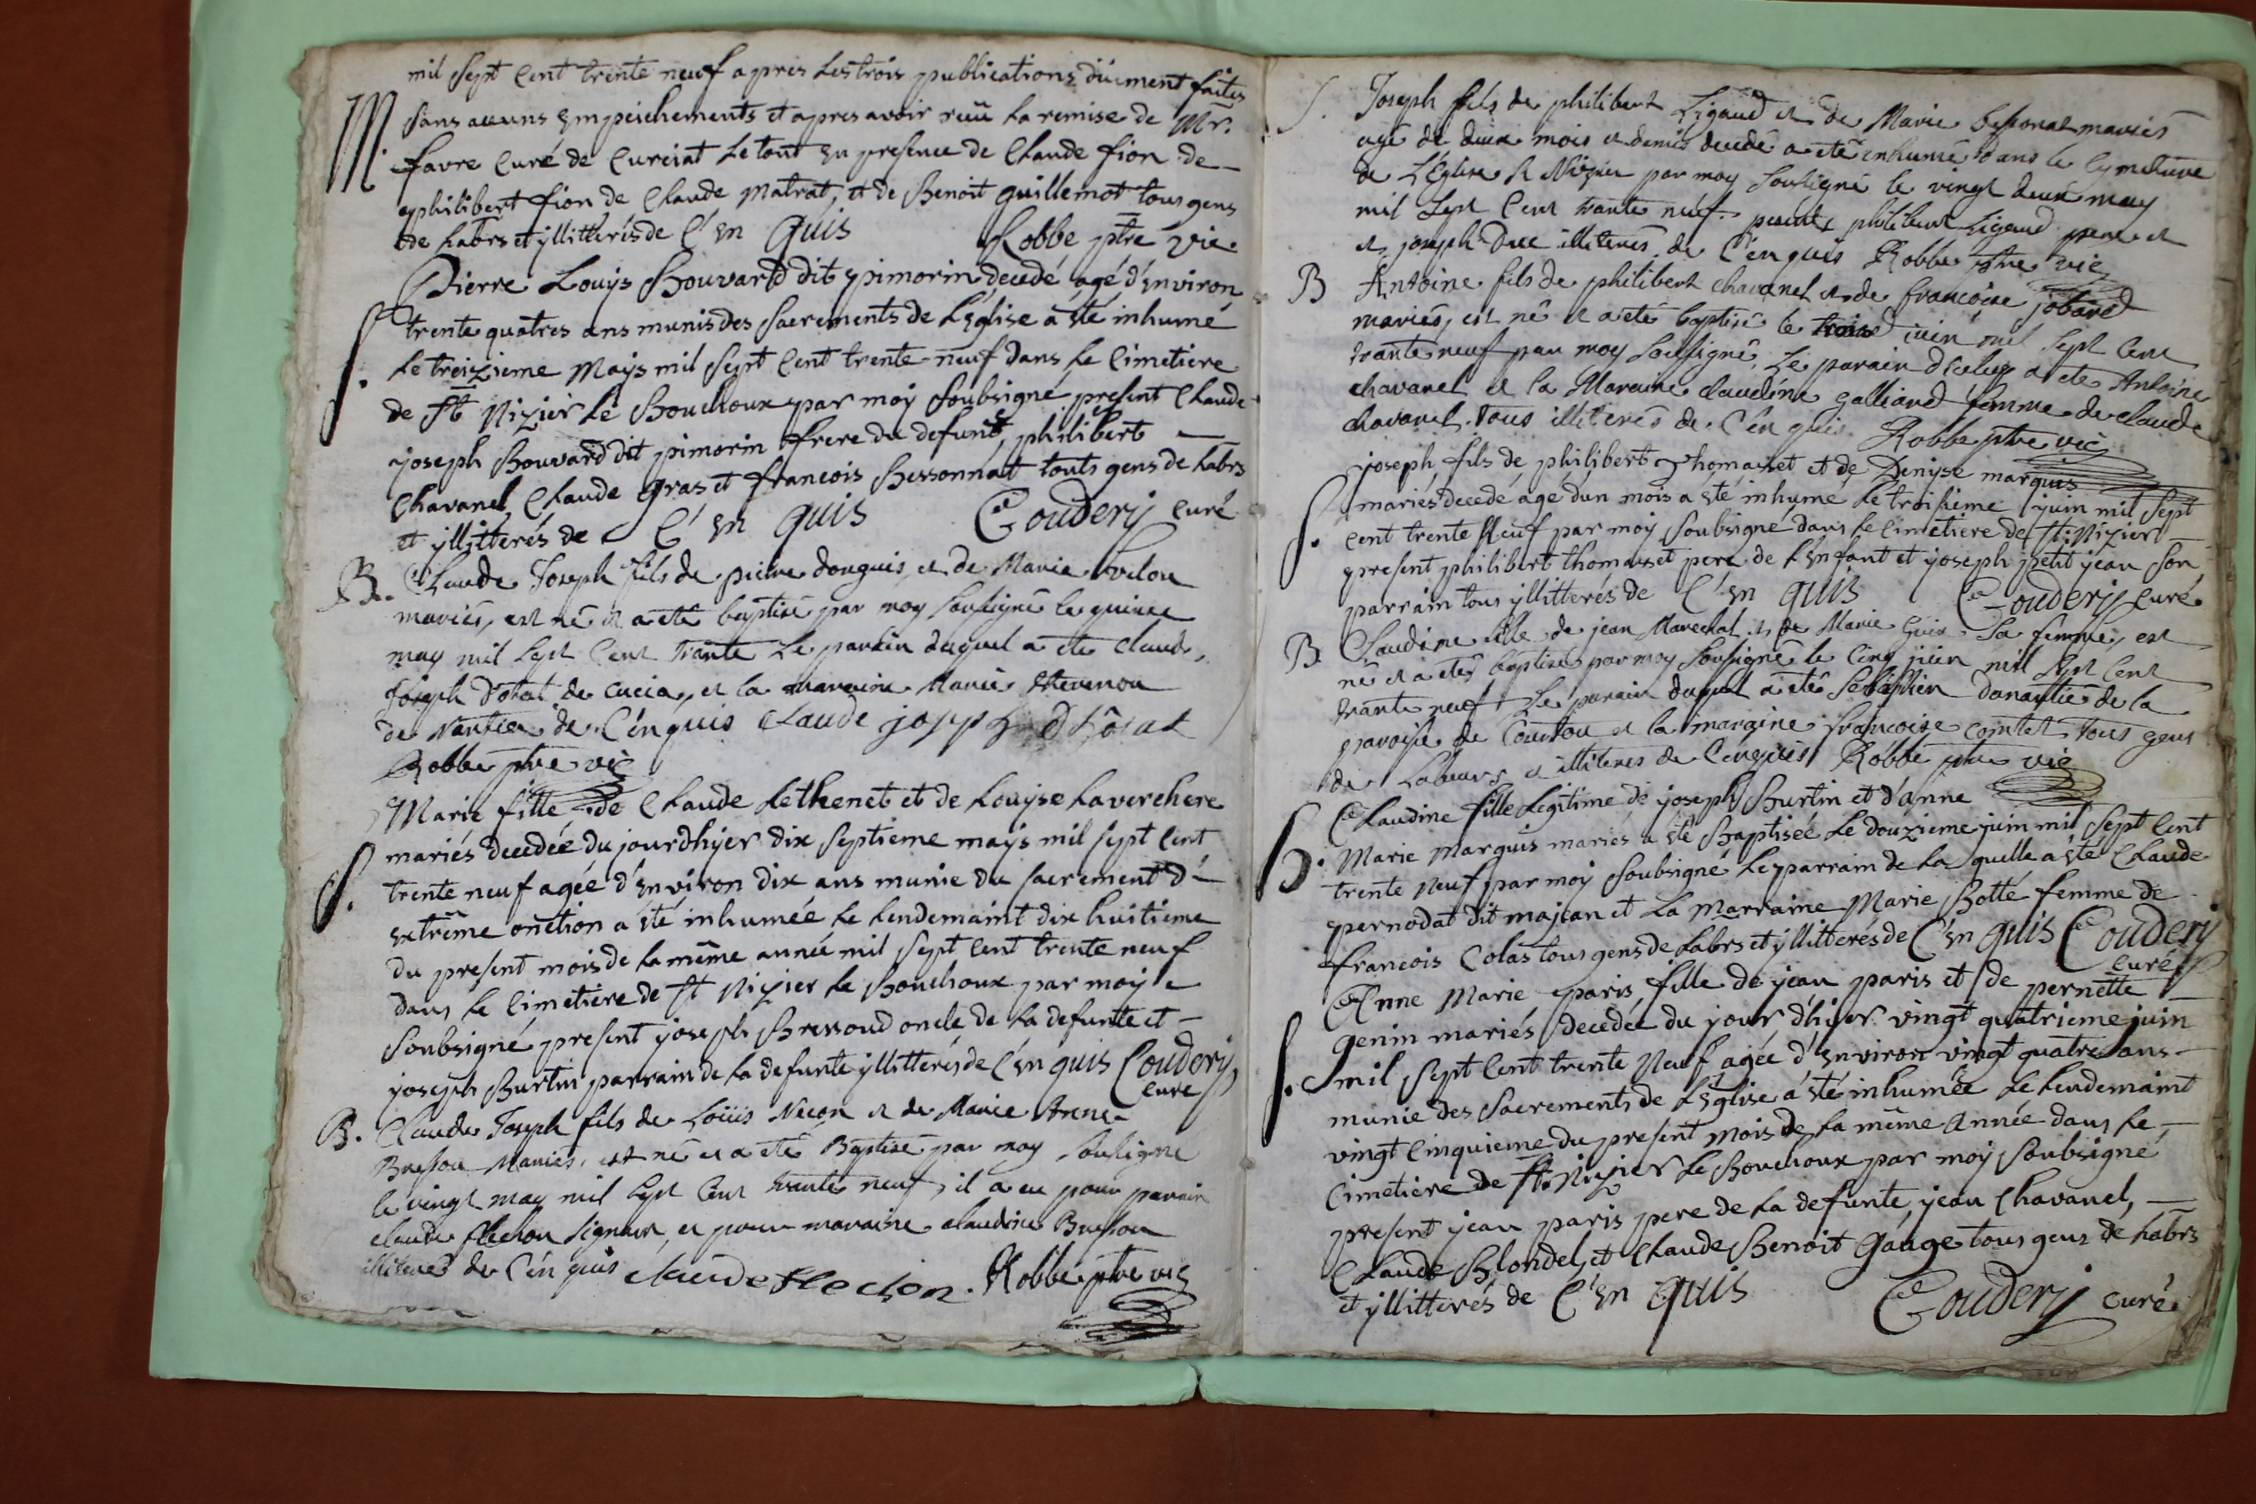 mil Sept Cent trente neuf apres Les trois publications düement faites
M. sans aucuns Empeichements et apres avoir reçu La remise de Mr.
favre Curé de Curciat Le tout En presence de Claude fion de
philibert fion de Claude Matrat, et de Benoit Guillemot tous gens
de Labrs et yllitterés de C'En Quis Robbe ptre Vic
Pierre Louys Bouvard dit pimorin decedé agé d'Environ
S. trente quatres ans munis des Sacrements de L'Eglise a Eté inhumé
Le treizieme Mays mil Sept Cent trente neuf dans Le Cimetiere
de St Nizier Le Bouchoux par moy Soubsigné, present Claude
joseph Bouvard dit pimorin frere du defunt, philibert
Chavanel, Claude gras et francois Bessonnat touts gens de Labrs
et yllitterés de C'En Quis Couderij Curé
B. Claude Joseph fils de pierre donguis, et de Marie
mariés, est né et a eté baptisé par moy soussigné le quinze
may mil sept Cent trante Le parain duquel a ete Claude
Joseph de Cucia, et la maraine Marie thevenon
de de C'enquis Claude joseph
Robbe ptre vic
Marie fille de Claude Lethenet et de Louyse Laverchere
mariés decedée du jourdhyer dix Septieme mays mil Sept Cent
S. trente neuf agée d'Environ dix ans munie du Sacrement d'
Extrême onction a Eté inhumée Le Lendemaint dix huitieme
du present mois de La même année mil Sept Cent trente neuf
dans Le Cimetiere de St Nizier Le Bouchoux par moy
Soubsigné present joseph Bressoud oncle de La defunte et
joseph Burtin parrain de La defunte yllitterés de C'En quis Couderij
Curé
B. Claude Joseph fils de Loüis Necon et de Marie Anne
Bresson Mariés, est né et a eté Baptisé par moy soussigné
le vingt may mil sept Cent trante neuf, il a eu pour parain
claude flechon signant, et pour maraine claudine Bresson
illiteré de C'en quis claude flechon. Robbe ptre vic
S. Joseph fils de philibert Ligaud et de Marie besonat mariés
agé de deux mois et demis decedé a eté inhumé dans le Cymetiere
de L'Eglise St Nizier par moy soussigné le vingt deux may
mil sept Cent trante neuf presents philibert Ligaud pere et
et joseph Duc illiterés de C'enquis Robbe ptre vic
B Antoine fils de philibert chavanel et de francoise jobard
mariés, est né et a eté baptisé le trois juin mil sept Cent
trante neuf par moy soussigné, Le parain d'icelui a eté Antoine
chavanel et la Maraine claudine galliard femme de claude
chavanel tous illiterés de C'en quis Robbe ptre vic
joseph fils de philibert Thomasset et de Denyse marquis
S. mariés decedé agé d'un mois a Eté inhumé Le troisieme juin mil Sept
Cent trente Neuf par moy Soubsigné dans Le Cimetiere de St Nizier
present philibert thomasset pere de L'Enfant et joseph petit jean Son
parrain tous yllitterés de C'En Quis Couderij Curé
B Claudine fille de jean Marechal et de Marie Guis Sa femme, est
né et a eté baptisé par moy soussigné le Cinq juin mil sept Cent
trante neuf Le parain duquel a eté Sebastien danantié de la
paroisse de Courtou et la maraine francoise comtet tous gens
de Labeurs et illiterés de Cenquis Robbe ptre vic
Claudine fille Legitime de joseph Burtin et d'anne
B. Marie Marquis mariés a Eté Baptisée Le douzieme juin mil Sept Cent
trente Neuf par moy Soubsigné Le parrain de La quelle a Eté Claude
pernodat dit majean et La Marraine Marie Botté femme de
francois Colas tous gens de Labrs et yllitterés de C'En Quis Couderij
Curé
Anne Marie paris, fille de jean paris et de pernette
Genin mariés decedée du jour d'hyer vingt quatrieme juin
S. mil Sept Cent trente Neuf agée d'Environ vingt quatre ans
munie des Sacrements de L'Eglise a Eté inhumée Le Lendemaint
vingt Cinquieme du present Mois de La même Année dans Le
Cimetiere de St Nizier Le Bouchoux par moy Soubsigné
present jean paris pere de La defunte, jean Chavanel,
Claude Blondel, et Claude Benoit Gauge tous gens de Labrs
et yllitterés de C'En Quis Couderij Curé